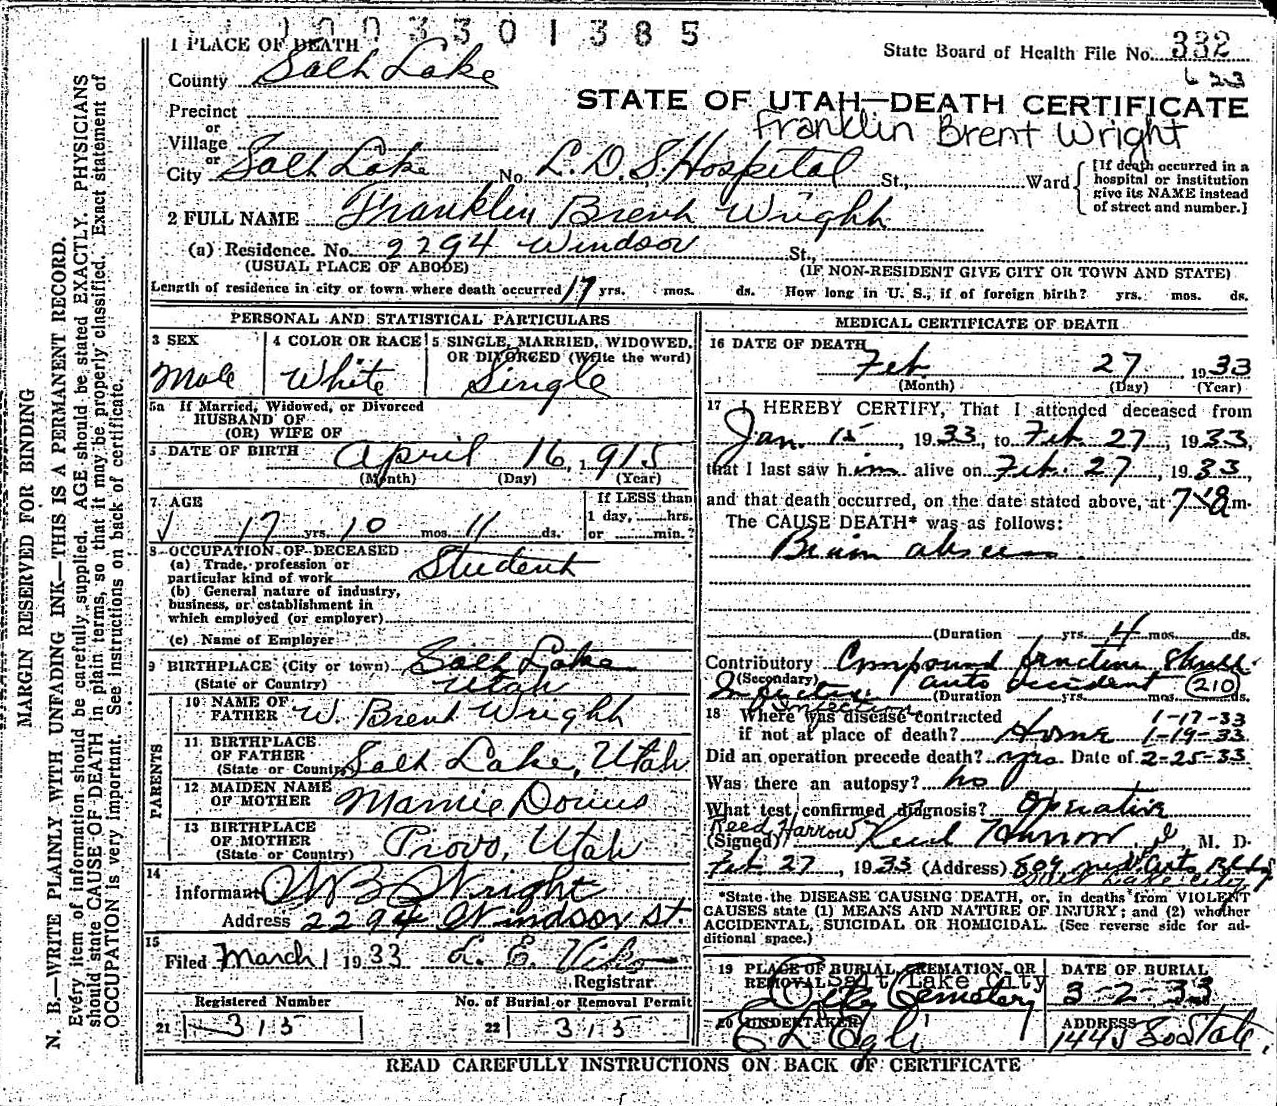 1003301385
1 PLACE OF DEATH
State Board of Health File No. 332
County Salt Lake
623
Precinct
STATE OF UTAH—DEATH CERTIFICATE
or
Franklin Brent Wright
Village
or
City Salt Lake No. L.D.S. Hospital St., Ward
[If death occurred in a
hospital or institution
give its NAME instead
of street and number.]
2 FULL NAME Franklin Brent Wright
(a) Residence. No. 2294 Windsor St.,
(USUAL PLACE OF ABODE) (IF NON-RESIDENT GIVE CITY OR TOWN AND STATE)
Length of residence in city or town where death occurred 17 yrs. mos. ds. How long in U. S., if of foreign birth? yrs. mos. ds.
PERSONAL AND STATISTICAL PARTICULARS
3 SEX 4 COLOR OR RACE 5 SINGLE, MARRIED, WIDOWED,
OR DIVORCED (Write the word)
Male White Single
5a If Married, Widowed, or Divorced
HUSBAND OF
(OR) WIFE OF
DATE OF BIRTH April 16, 1915
(Month) (Day) (Year)
7 AGE
If LESS than
1 day, hrs.
17 yrs. 10 mos. 11 ds. or min.?
8 OCCUPATION OF DECEASED
(a) Trade, profession or
particular kind of work Student
(b) General nature of industry,
business, or establishment in
which employed (or employer)
(c) Name of Employer
9 BIRTHPLACE (City or town) Salt Lake
(State or Country) Utah
PARENTS
10 NAME OF
FATHER W. Brent Wright
11 BIRTHPLACE
OF FATHER
(State or Country) Salt Lake, Utah
12 MAIDEN NAME
OF MOTHER Mamie
13 BIRTHPLACE
OF MOTHER
(State or Country) Provo, Utah
14
Informant W B Wright
Address 2294 Windsor St.
15
Filed March 1 1933 L. E. Viko
Registrar
Registered Number No. of Burial or Removal Permit
21 315 22 315
MEDICAL CERTIFICATE OF DEATH
16 DATE OF DEATH
Feb 27 1933
(Month) (Day) (Year)
17 I HEREBY CERTIFY, That I attended deceased from
Jan. 15, 1933, to Feb. 27, 1933,
that I last saw him alive on Feb. 27, 1933,
and that death occurred, on the date stated above, at m.
The CAUSE DEATH* was as follows:
Brain abscess
(Duration yrs. 4 mos. ds.
Contributory Compound fracture Skull
(Secondary) auto accident 210
(Duration yrs. mos. ds.
Infection
18 Where was disease contracted 1-17-33
if not at place of death? Home 1-19-33
Did an operation precede death? yes. Date of 2-25-33
Was there an autopsy? no
What test confirmed diagnosis? Operative
Reed Harrow
(Signed) Reed Harrow, M. D.
Feb 27, 1933 (Address) 809 Med Arts Bldg
Salt Lake City
*State the DISEASE CAUSING DEATH, or, in deaths from VIOLENT
CAUSES state (1) MEANS AND NATURE OF INJURY; and (2) whether
ACCIDENTAL, SUICIDAL OR HOMICIDAL. (See reverse side for ad-
ditional space.)
19 PLACE OF BURIAL, CREMATION, OR
REMOVAL Salt Lake City
City Cemetery
DATE OF BURIAL
3-2-33
20 UNDERTAKER
E L Egli
ADDRESS
1445 So State,
READ CAREFULLY INSTRUCTIONS ON BACK OF CERTIFICATE
MARGIN RESERVED FOR BINDING
N. B.—WRITE PLAINLY WITH UNFADING INK—THIS IS A PERMANENT RECORD.
Every item of information should be carefully supplied. AGE should be stated EXACTLY. PHYSICIANS
should state CAUSE OF DEATH in plain terms, so that it may be properly classified. Exact statement of
OCCUPATION is very important. See instructions on back of certificate.